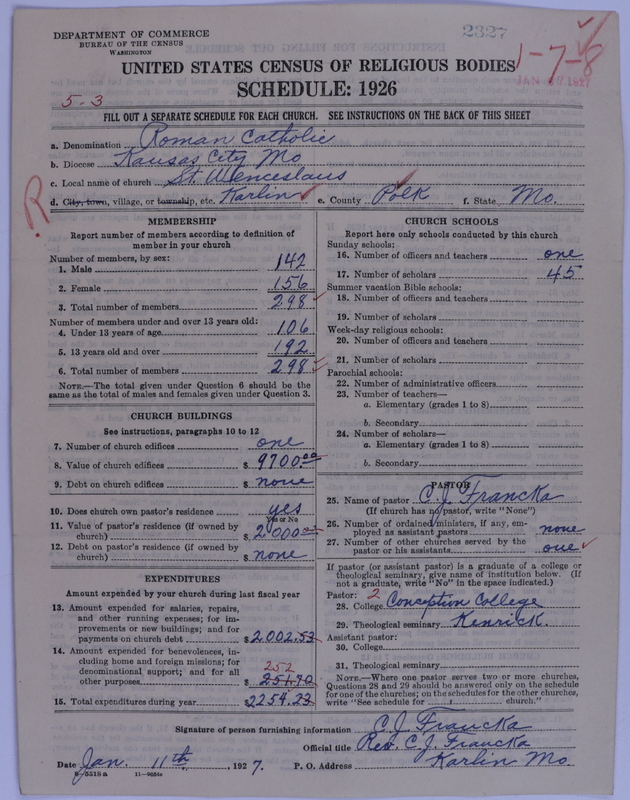 DEPARTMENT OF COMMERCE
BUREAU OF THE CENSUS
WASHINGTON
2327
1-7-8
JAN 27 1927
UNITED STATES CENSUS OF RELIGIOUS BODIES
SCHEDULE: 1926
5-3
FILL OUT A SEPARATE SCHEDULE FOR EACH CHURCH. SEE INSTRUCTIONS ON THE BACK OF THIS SHEET
a. Denomination Roman Catholic
b. Diocese Kansas City Mo
c. Local name of church St. Wenceslaus
d. City, town, village, or township, etc. Karlin e. County Polk f. State Mo.
R
MEMBERSHIP
Report number of members according to definition of
member in your church
Number of members, by sex:
1. Male 142
2. Female 156
3. Total number of members 298
Number of members under and over 13 years old:
4. Under 13 years of age 106
5. 13 years old and over 192
6. Total number of members 298
NOTE.—The total given under Question 6 should be
same as the total of males and females given under Question 3.
CHURCH BUILDINGS
See instructions, paragraphs 10 to 12
7. Number of church edifices one
8. Value of church edifices $ 9700.00
9. Debt on church edifices $ none
10. Does church own pastor's residence yes
Yes or No
11. Value of pastor's residence (if owned by
church) $ 2000.00
12. Debt on pastor's residence (if owned by
church) $ none
EXPENDITURES
Amount expended by your church during last fiscal year
13. Amount expended for salaries, repairs,
and other running expenses; for im-
provements or new buildings; and for
payments on church debt $ 2.002.53
14. Amount expended for benevolences, in-
cluding home and foreign missions; for
denominational support; and for all
other purposes $ 251.70
252
15. Total expenditures during year $ 2254.23
CHURCH SCHOOLS
Report here only schools conducted by this church
Sunday schools:
16. Number of officers and teachers one
17. Number of scholars 45
Summer vacation Bible schools:
18. Number of officers and teachers
19. Number of scholars
Week-day religious schools:
20. Number of officers and teachers
21. Number of scholars
Parochial schools:
22. Number of administrative officers
23. Number of teachers—
a. Elementary (grades 1 to 8)
b. Secondary
24. Number of scholars—
a. Elementary (grades 1 to 8)
b. Secondary
PASTOR
25. Name of pastor C. J. Francka
(If church has no pastor, write "None")
26. Number of ordained ministers, if any, em-
ployed as assistant pastors none
27. Number of other churches served by the
pastor or his assistants one
If pastor (or assistant pastor) is a graduate of a college or
theological seminary, give name of institution below. (If
not a graduate, write "No" in the space indicated.)
Pastor: 2
28. College Conception College
29. Theological seminary Kenrick.
Assistant pastor:
30. College
31. Theological seminary
NOTE.—Where one pastor serves two or more churches,
Questions 28 and 29 should be answered only on the schedule
for one of the churches; on the schedules for the other churches,
write "See schedule for church."
Signature of person furnishing information C. J. Francka
Official title Rev. C. J. Francka
Date Jan. 11th, 1927. P. O. Address Karlin Mo.